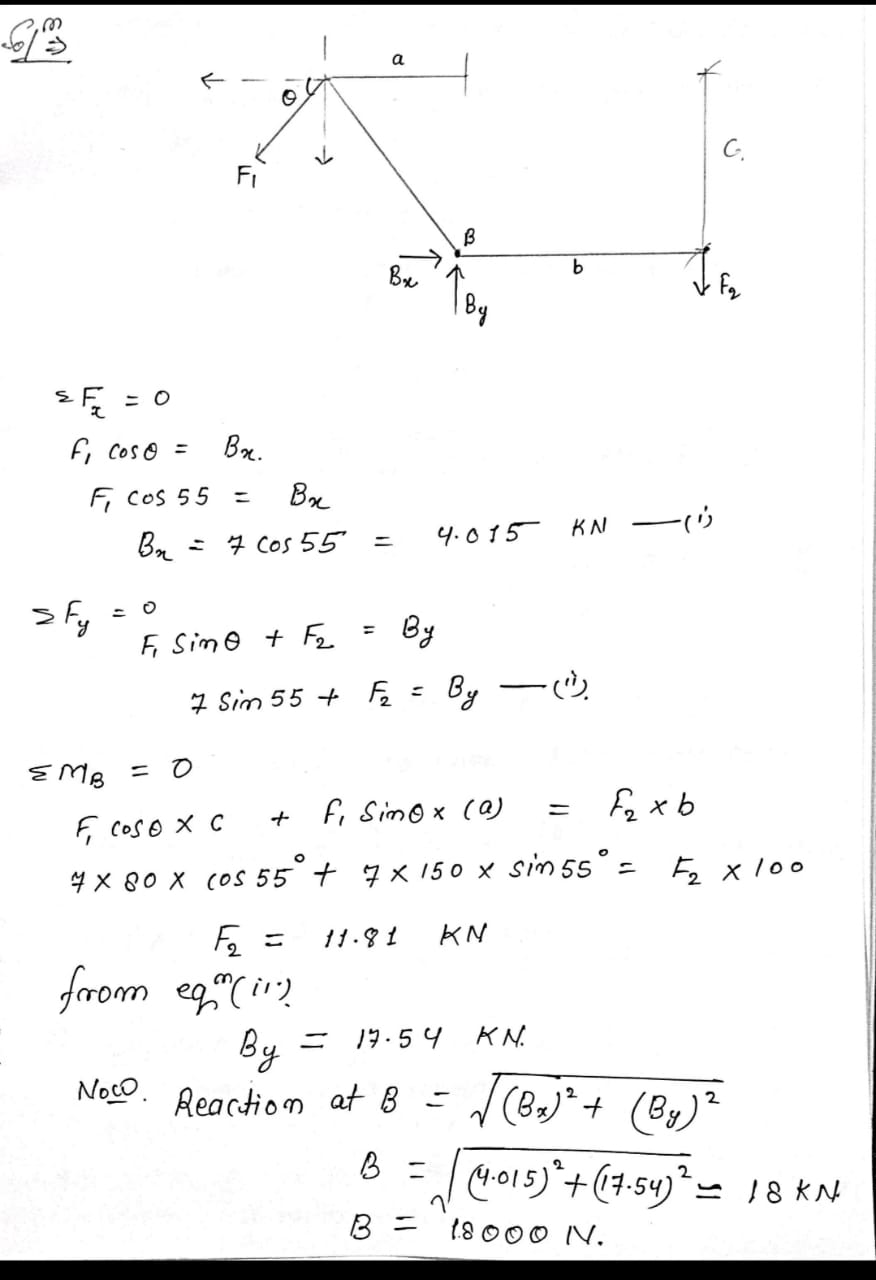 Sol^n ⇒
a
θ
F₁
C.
B
Bx
b
F₂
By
Σ Fx = 0
F₁ cosθ = Bx.
F₁ cos 55 = Bx
Bx = 7 cos 55 = 4.015 KN —(i)
Σ Fy = 0
F₁ Sinθ + F₂ = By
7 Sin 55 + F₂ = By —(ii).
Σ MB = 0
F₁ cosθ × C + F₁ Sinθ × (a) = F₂ × b
7 × 80 × cos 55° + 7 × 150 × sin 55° = F₂ × 100
F₂ = 11.81 KN
from eq^n (ii)
By = 17.54 KN.
Now. Reaction at B = √(Bx)² + (By)²
B = √(4.015)² + (17.54)² = 18 KN
B = 18000 N.